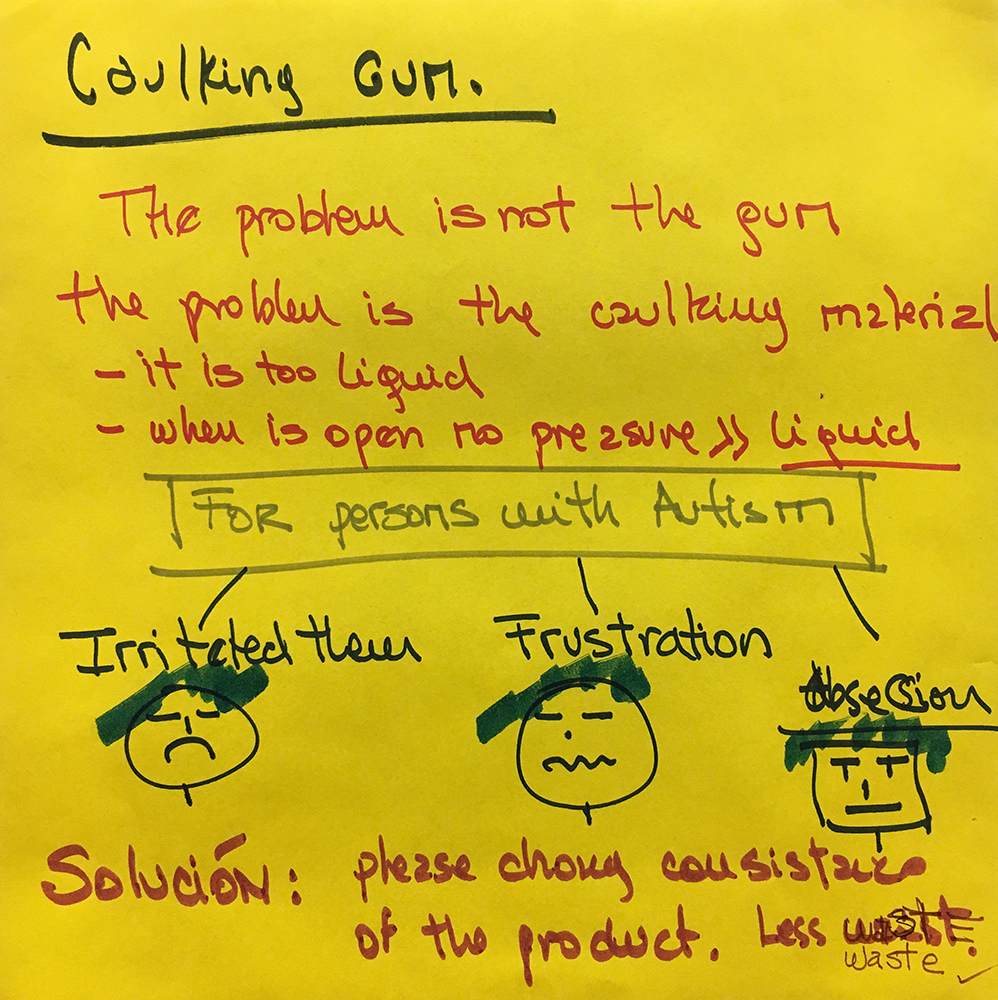 Caulking GUM.
The problem is not the gum
the problem is the caulking material
- it is too liquid
- when is open no pressure >> liquid
FOR persons with Autism
Irritated them
Frustration
Obsesion
Solución: please chang consistance
of the product. Less waste.
waste